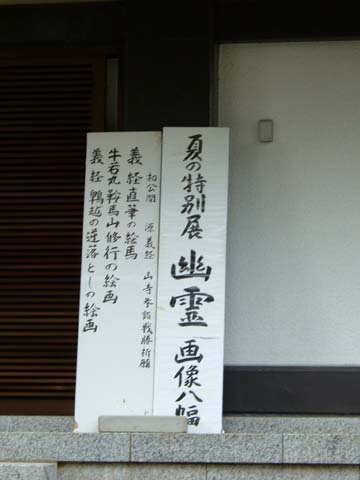 夏の特別展 幽霊 画像八幅
初公開 源義経 山寺参詣戦勝祈願
義経直筆の絵馬
牛若丸鞍馬山修行の絵画
義経鵯越の逆落としの絵画